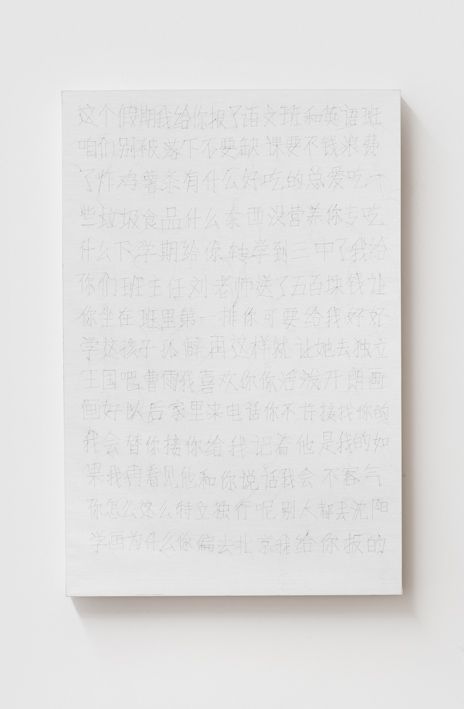 这个假期我给你报了语文班和英语班
咱们别被落下不要缺课要不钱浪费
了炸鸡薯条有什么好吃的总爱吃一
些垃圾食品什么东西没营养你专吃
什么下学期给你转学到三中了我给
你们班主任刘老师送了五百块钱让
你坐在班里第一排你可要给我好好
学这孩子孤僻再这样就让她去独立
王国吧曹雨我喜欢你你活泼开朗画
画好以后家里来电话你不许接找你的
我会替你接你给我记着他是我的如
果我看见他和你说话我会不客气
你怎么这么特立独行呢别人都去沈阳
学画为什么你偏去北京我给你报的